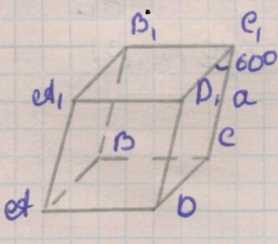 B₁ C₁
60°
A₁ D₁ a
B C
A D